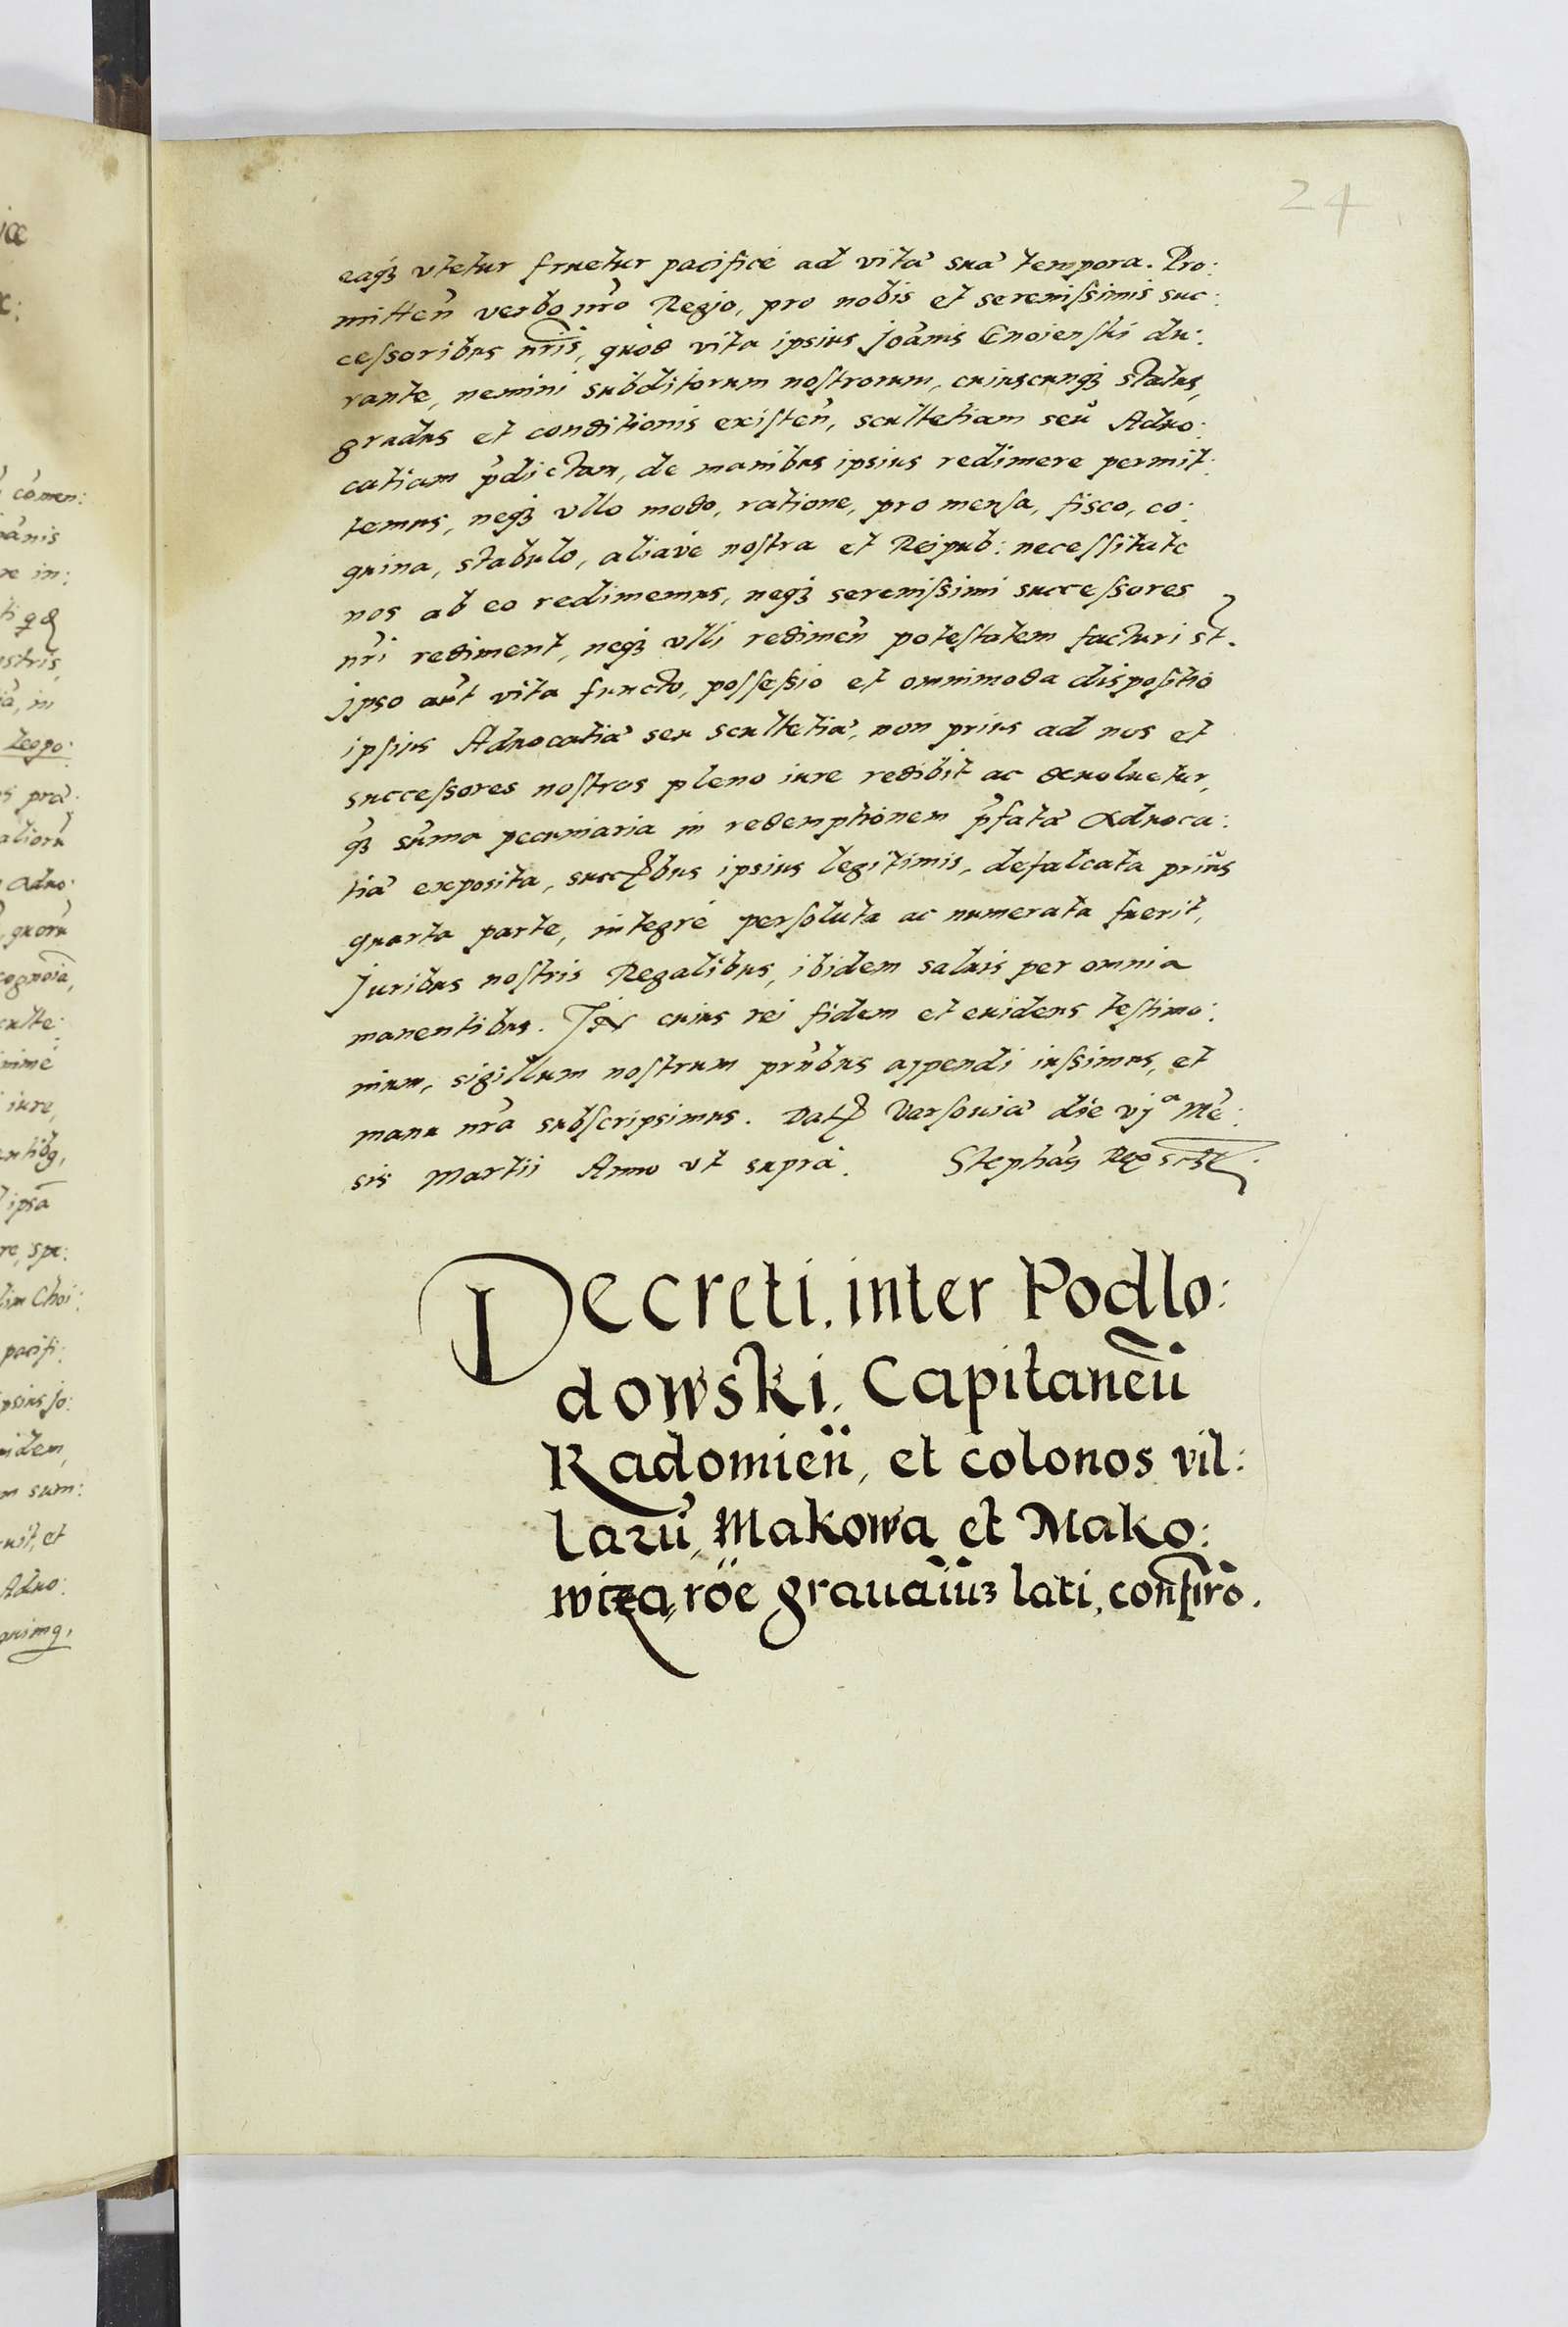 24
eaq3 vtetur fruetur pacifice ad vitæ suæ tempora. Pro:
mitteñ verbo nr̃o Regio, pro nobis et sereniſsimis suc:
ceſsoribus nr̃is, quod vita ipsius Joãnis Gnoienſki du:
rante, nemini subditorum noſtrorum, cuiuscunq3 status,
gradus et conditionis exiſteñ, scultetiam seu Aduo:
catiam p̃dictam, de manibus ipsius redimere permit:
temus, neq3 vllo modo, ratione, pro menſa, fisco, co:
quina, stabulo, aliave noſtra et Reipub: neceſſitate
nos ab eo redimemus, neq3 sereniſsimi succeſsores
nr̃i rediment, neq3 vlli redimeñ poteſtatem facturi st̃.
ipso aut̃ vita functo, poſſeſsio et omnimoda diſpoſitio
ipſius Aduocatiæ seu scultetiæ, non prius ad nos et
succeſsores noſtros pleno iure redibit ac deuoluetur,
q̃3 sum̃a pecuniaria in redemptionem p̃fatæ Aduoca:
tiæ exposita, succꝭbus ipsius legitimis, defalcata prius
quarta parte, integrè perſoluta ac numerata fuerit,
Juribus noſtris Regalibus, ibidem saluis per omnia
manentibus. In cuius rei fidem et euidens teſtimo:
nium, sigillum noſtrum pñtibus appendi iuſsimus, et
manu nr̃a subſcripsimus. Datꝭ Varſouiæ die vjª Mẽ:
sis Martii Anno vt suprà. Stephãs Rex ssꝭt
Decreti inter Podlo:
dowski, Capitaneũ
Radomieñ, et colonos vil:
larũ, Makowa et Mako:
wiza, rõe grauaĩu3 lati, confir̃o.